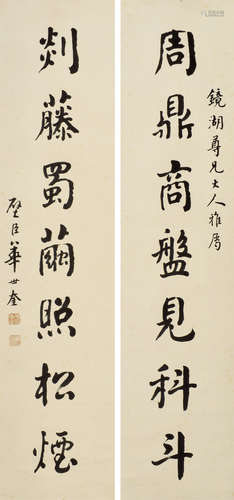 鏡湖尊兄大人雅屬
周鼎商盤見科斗
剡藤蜀繭照松煙
璧臣華世奎